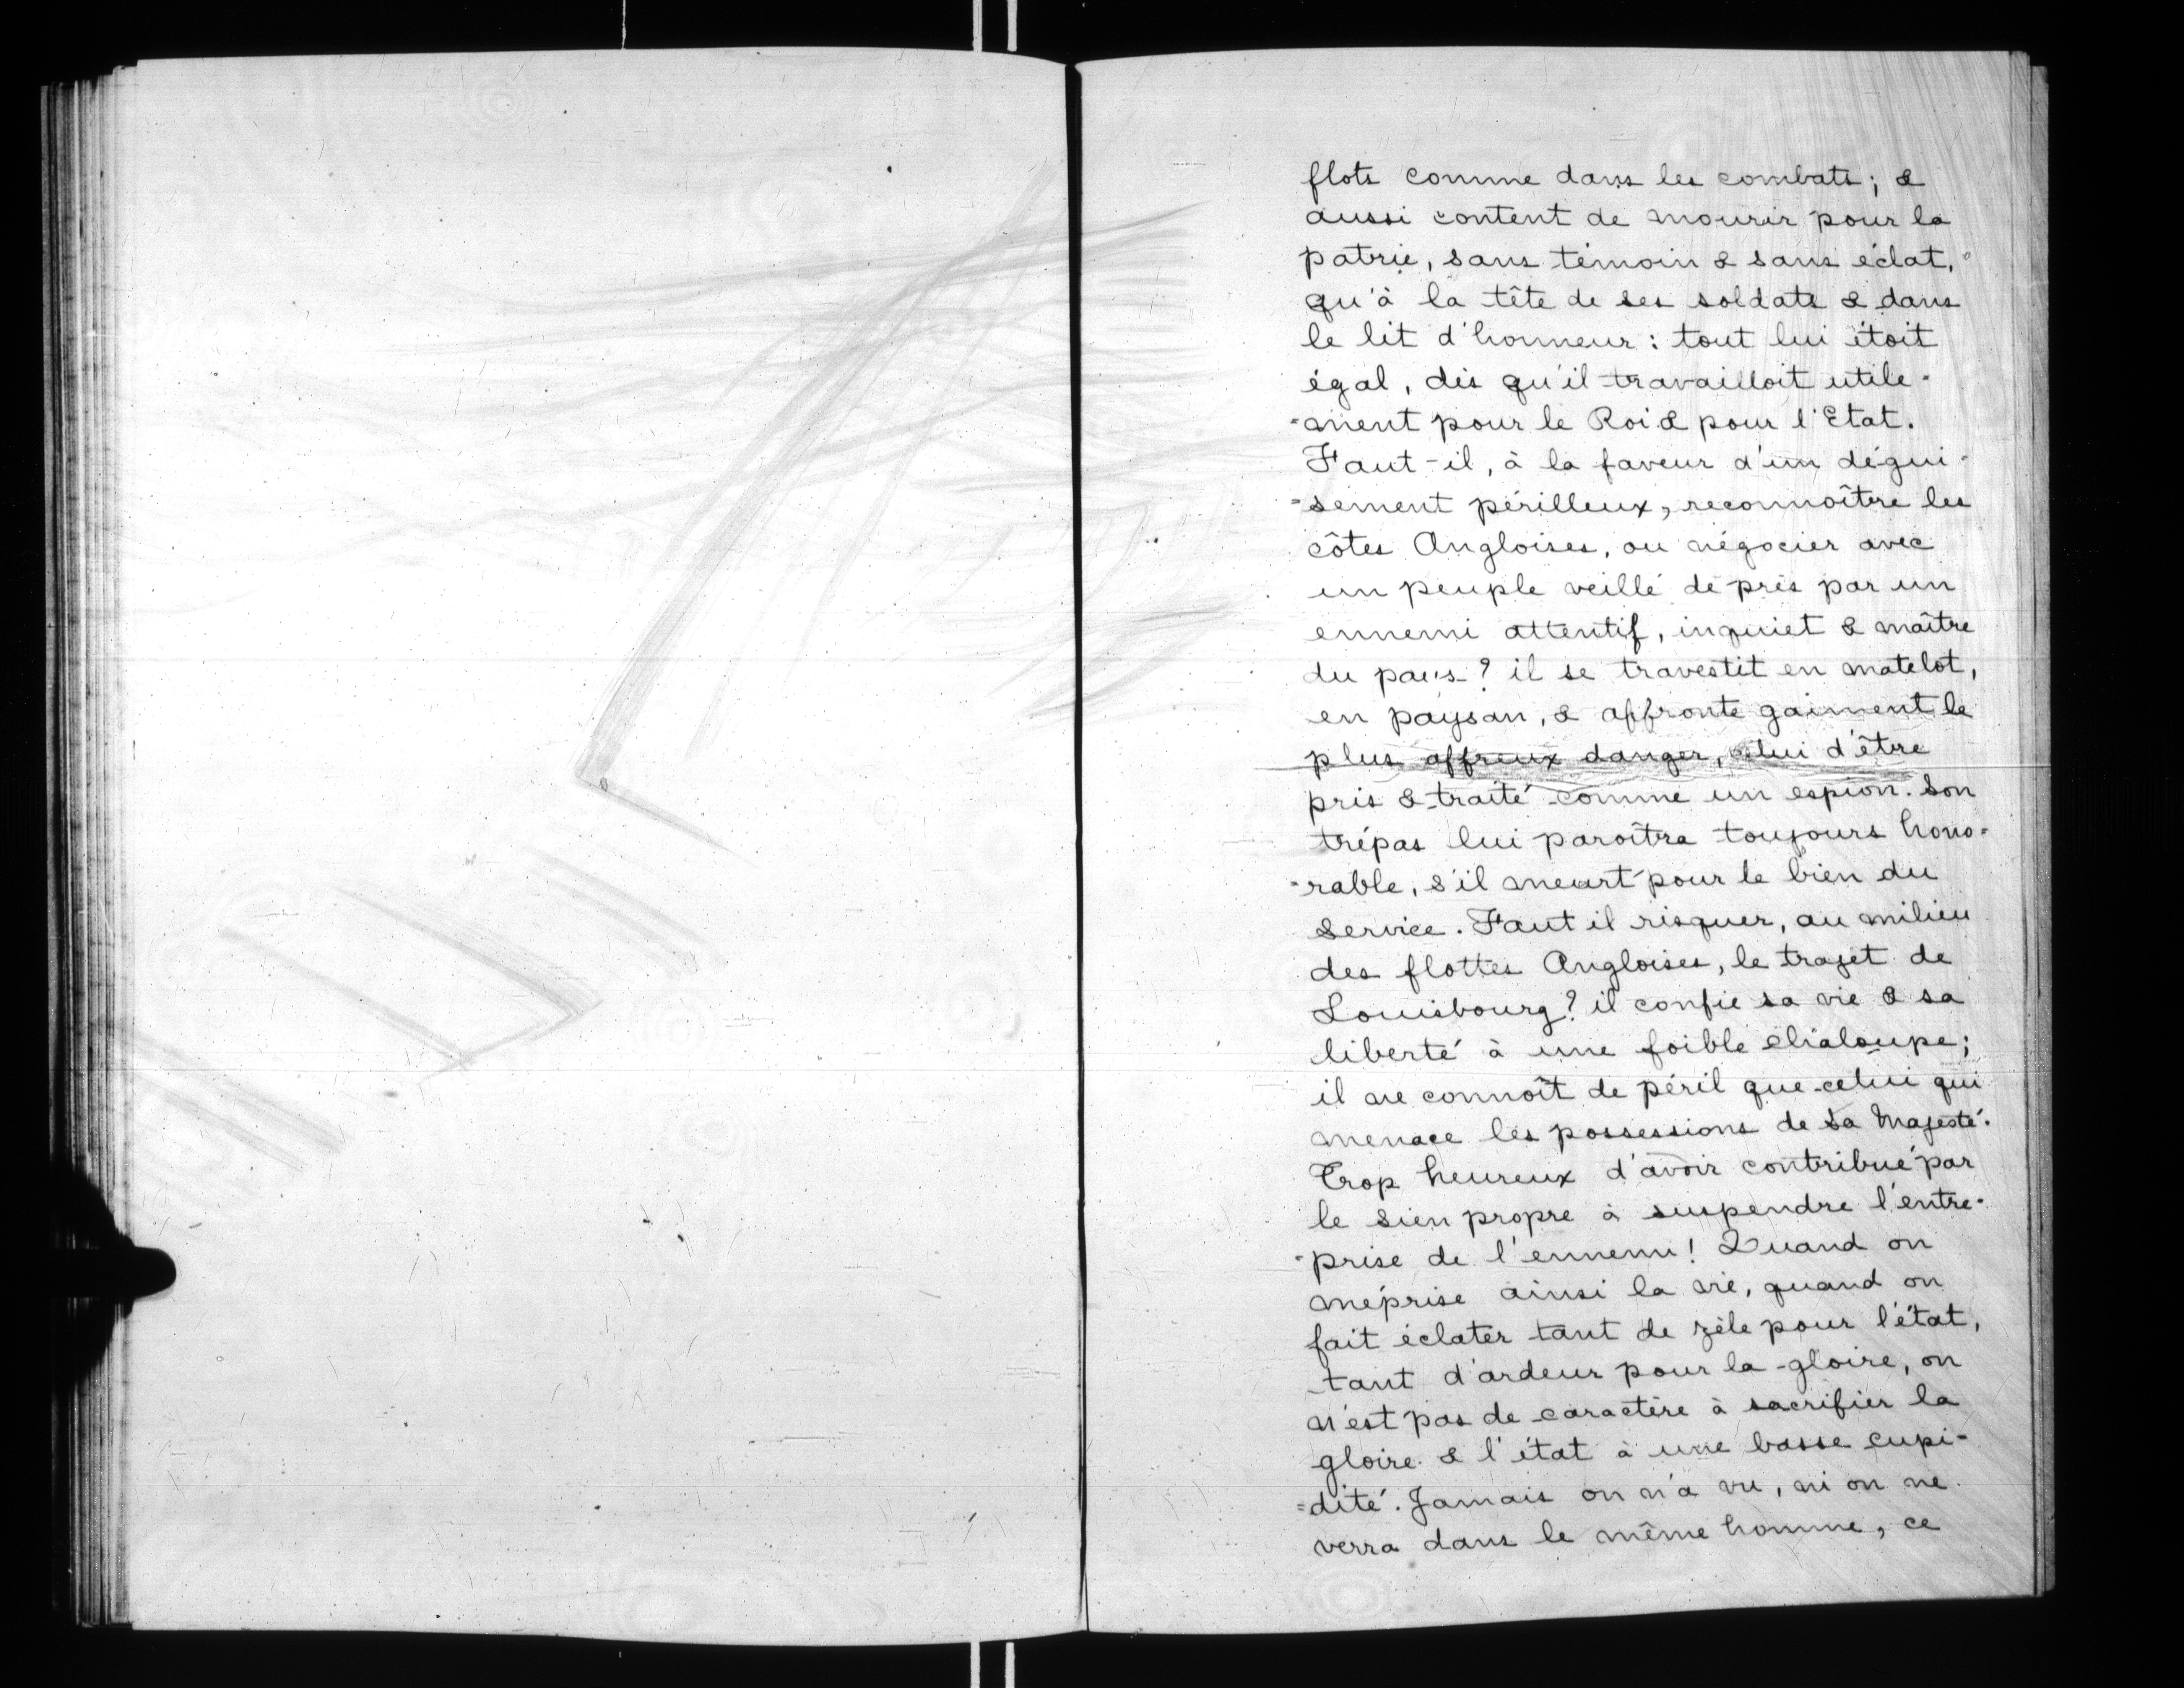 flots comme dans les combats; &
aussi content de mourir pour la
patrie, sans témoin & sans éclat,
qu'à la tête de ses soldats & dans
le lit d'honneur : tout lui étoit
égal, dès qu'il travailloit utile-
-ment pour le Roi & pour l'Etat.
Faut-il, à la faveur d'un dégui-
-sement périlleux, reconnoître les
côtes Angloises, ou négocier avec
un peuple veillé de près par un
ennemi attentif, inquiet & maître
du païs ? il se travestit en matelot,
en paysan, & affronte gaiment le
plus affreux danger, celui d'être
pris & traité comme un espion. Son
trépas lui paroîtra toujours hono-
-rable, s'il meurt pour le bien du
service. Faut il risquer, au milieu
des flottes Angloises, le trajet de
Louisbourg ? il confie sa vie & sa
liberté à une foible chaloupe;
il ne connoît de péril que celui qui
menace les possessions de Sa Majesté.
Trop heureux d'avoir contribué par
le sien propre à suspendre l'entre-
-prise de l'ennemi ! Quand on
méprise ainsi la vie, quand on
fait éclater tant de zèle pour l'état,
tant d'ardeur pour la gloire, on
n'est pas de caractère à sacrifier la
gloire & l'état à une basse cupi-
=dité. Jamais on n'a vu, ni on ne
verra dans le même homme, ce